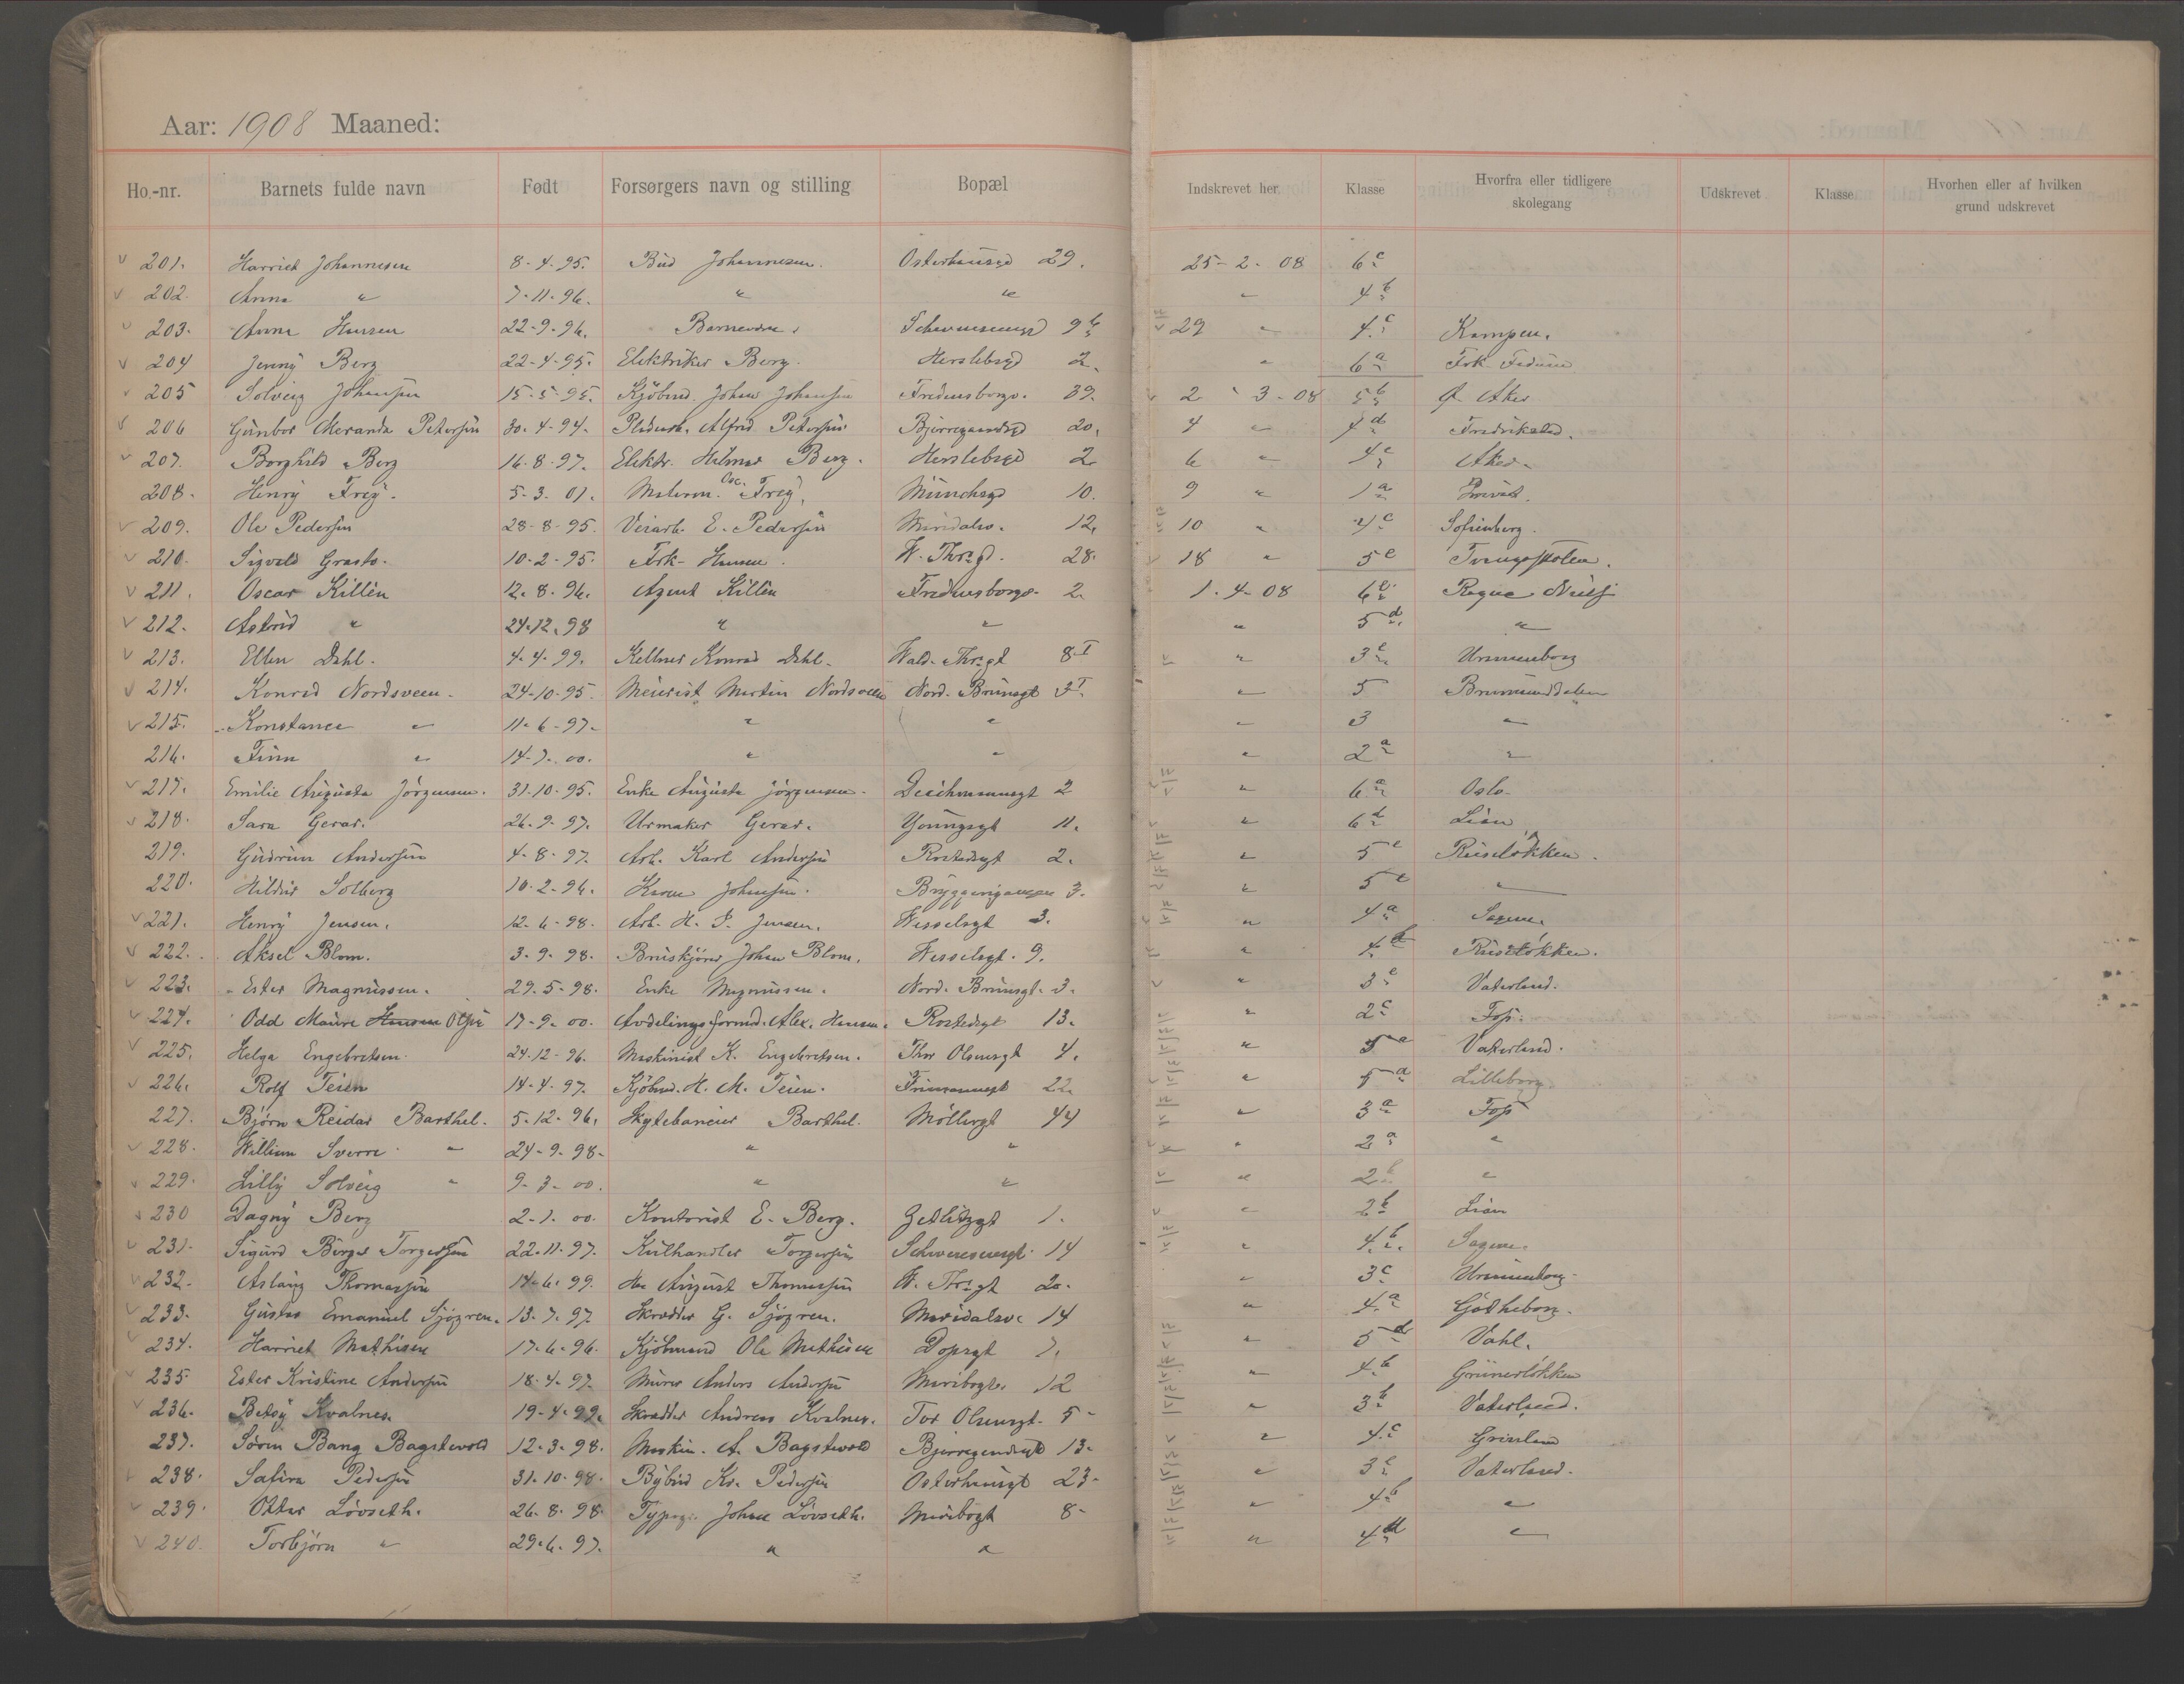 Aar: 1908 Maaned:
Ho.-nr. Barnets fulde navn Født Forsørgers navn og stilling Bopæl Indskrevet her Klasse Hvorfra eller tidligere skolegang Udskrevet Klasse Hvorhen eller af hvilken grund udskrevet
201. Harriet Johannesen 8-4-95. Bud Johannesen. Osterhausgd 29. 25-2-08 6c
202. Anna " 7-11-96. " " " 4b
203. Anna Hansen 22-9-96. Schwensensgd 9b 29 " 4c Kampen.
204 Jenny Berg 22-4-95. Elektriker Berg. Herslebsgd 2. " 6a Frk.
205 Solveig Johansen 15-5-95. Kjöbmd. Johan Johansen Fredensborgv. 39. 2 " 3-08 5b Ø. Aker
206 Gunbor Meranda Petersen 30-4-94. Alfred Petersen Bjerregaardsgd 20. 4 " 4d Fredrikstad.
207. Borghild Berg 16-8-97. Elektr. Hilmar Berg. Herslebsgd 2 6 " 4c Aker.
208. Henry Frey. 5-3-01. Osc. Frey. Munchsgd 10. 9 " 1a Privat.
209. Ole Pedersen 28-8-95. Veiarb. E. Pedersen Maridalsv. 12. 10 " 4c Sofienberg.
210. Sigvald Grasto. 10-2-95. Frk. Hansen. W. Thr.gd. 28. 18 " 5e Tvangsskolen.
211. Oscar Killén 12-8-96. Agent Killén Fredensborgv. 2. 1-4-08 6e
212. Astrid " 24-12-98 " " " 5d "
213. Ellen Dahl. 4-4-99. Kellner Konrad Dahl. Wald. Thr.gt 8I " 3e Uranienborg
214. Konrad Nordsveen. 24-10-95. Meierist Martin Nordsveen Nord. Brunsgt 3I. " 5 Brumunddalen
215. Konstance " 11-6-97. " " " 3 "
216. Finn " 14-7-00. " " " 2a "
217. Emilie Augusta Jörgensen. 31-10-95. Enke Augusta Jörgensen. Deichmansgt 2 " 6a Oslo.
218. Sara Geras. 26-9-97. Urmaker Geras. Youngsgt 11. " 6d Lian
219. Gudrun Andersen 4-8-97. Arb. Karl Andersen Rostedsgt 2. " 5e Ruselökken.
220. Hildur Solberg 10-2-96. Karen Johansen. Bryggerigangen 3. " 5e "
221. Henry Jensen. 12-6-98. Arb. H. P. Jensen. Wesselsgt 3. " 4a Sagene.
222. Aksel Blom. 3-9-98. Bruskjører Johan Blom. Wesselsgt. 9. " 4b Ruselökken.
223. Ester Magnussen. 29-5-98. Enke Magnussen. Nord. Brunsgt. 3. " 3e Vaterland.
224. Odd Maure Hansen Olsen 17-9-00. Avdelingsformd. Alex. Hansen. Rostedsgt 13. " 2c Foss.
225. Helga Engebretsen. 24-12-96. Maskinist K. Engebretsen. Thor Olsensgt 4. " 5e Vaterland.
226. Rolf Teien 14-4-97. Kjöbmd. H. M. Teien. 22. " 5a Lilleborg
227. Björn Reidar Barthel. 5-12-96. Skytebaneier Barthel. Möllergt 44 " 3a Foss
228. William Sverre " 24-9-98. " " " 2a "
229. Lilly Solveig " 9-3-00. " " " 2b "
230 Dagny Berg 2-1-00. Kontorist E. Berg. Zetlitzgt 1. " 2b Lian
231. Sigurd Birger Torgersen 22-11-97. Kulhandler Torgersen Schwensensgt. 14 " 4b. Sagene.
232. Aslaug Thomassen 14-6-99. August Thomassen W. Thr.gt 20. " 3c Uranienborg.
233. Gustav Emanuel Sjögren. 13-7-97. Skrædder G. Sjögren. Maridalsv. 14 " 4a Götheborg.
234. Harriet Mathisen 17-6-96. Kjöbmand Ole Mathisen Dopsgt 7. " 5d Vahl.
235 Ester Kristine Andersen 18-4-97. Murer Anders Andersen Maribogt. 12 " 4b Grünerlökken
236. Betsy Kvalnes 19-4-99. Skrædder Andreas Kvalnes. Tor Olsensgt. 5 " 3b Vaterland.
237. Sören Bang Bagstevold 12-3-98. Maskin. A. Bagstevold Bjerregaardsgt 13. " 4c
238. Pedersen 31-10-98. Bybud Kr. Pedersen Osterhausgt 23. " 3e Vaterland.
239. Ottar Lövseth. 26-8-98 Typogr. Johan Lövseth. Maribogt 8 " 4b "
240. Torbjörn " 29-6-97. " " " 4d "